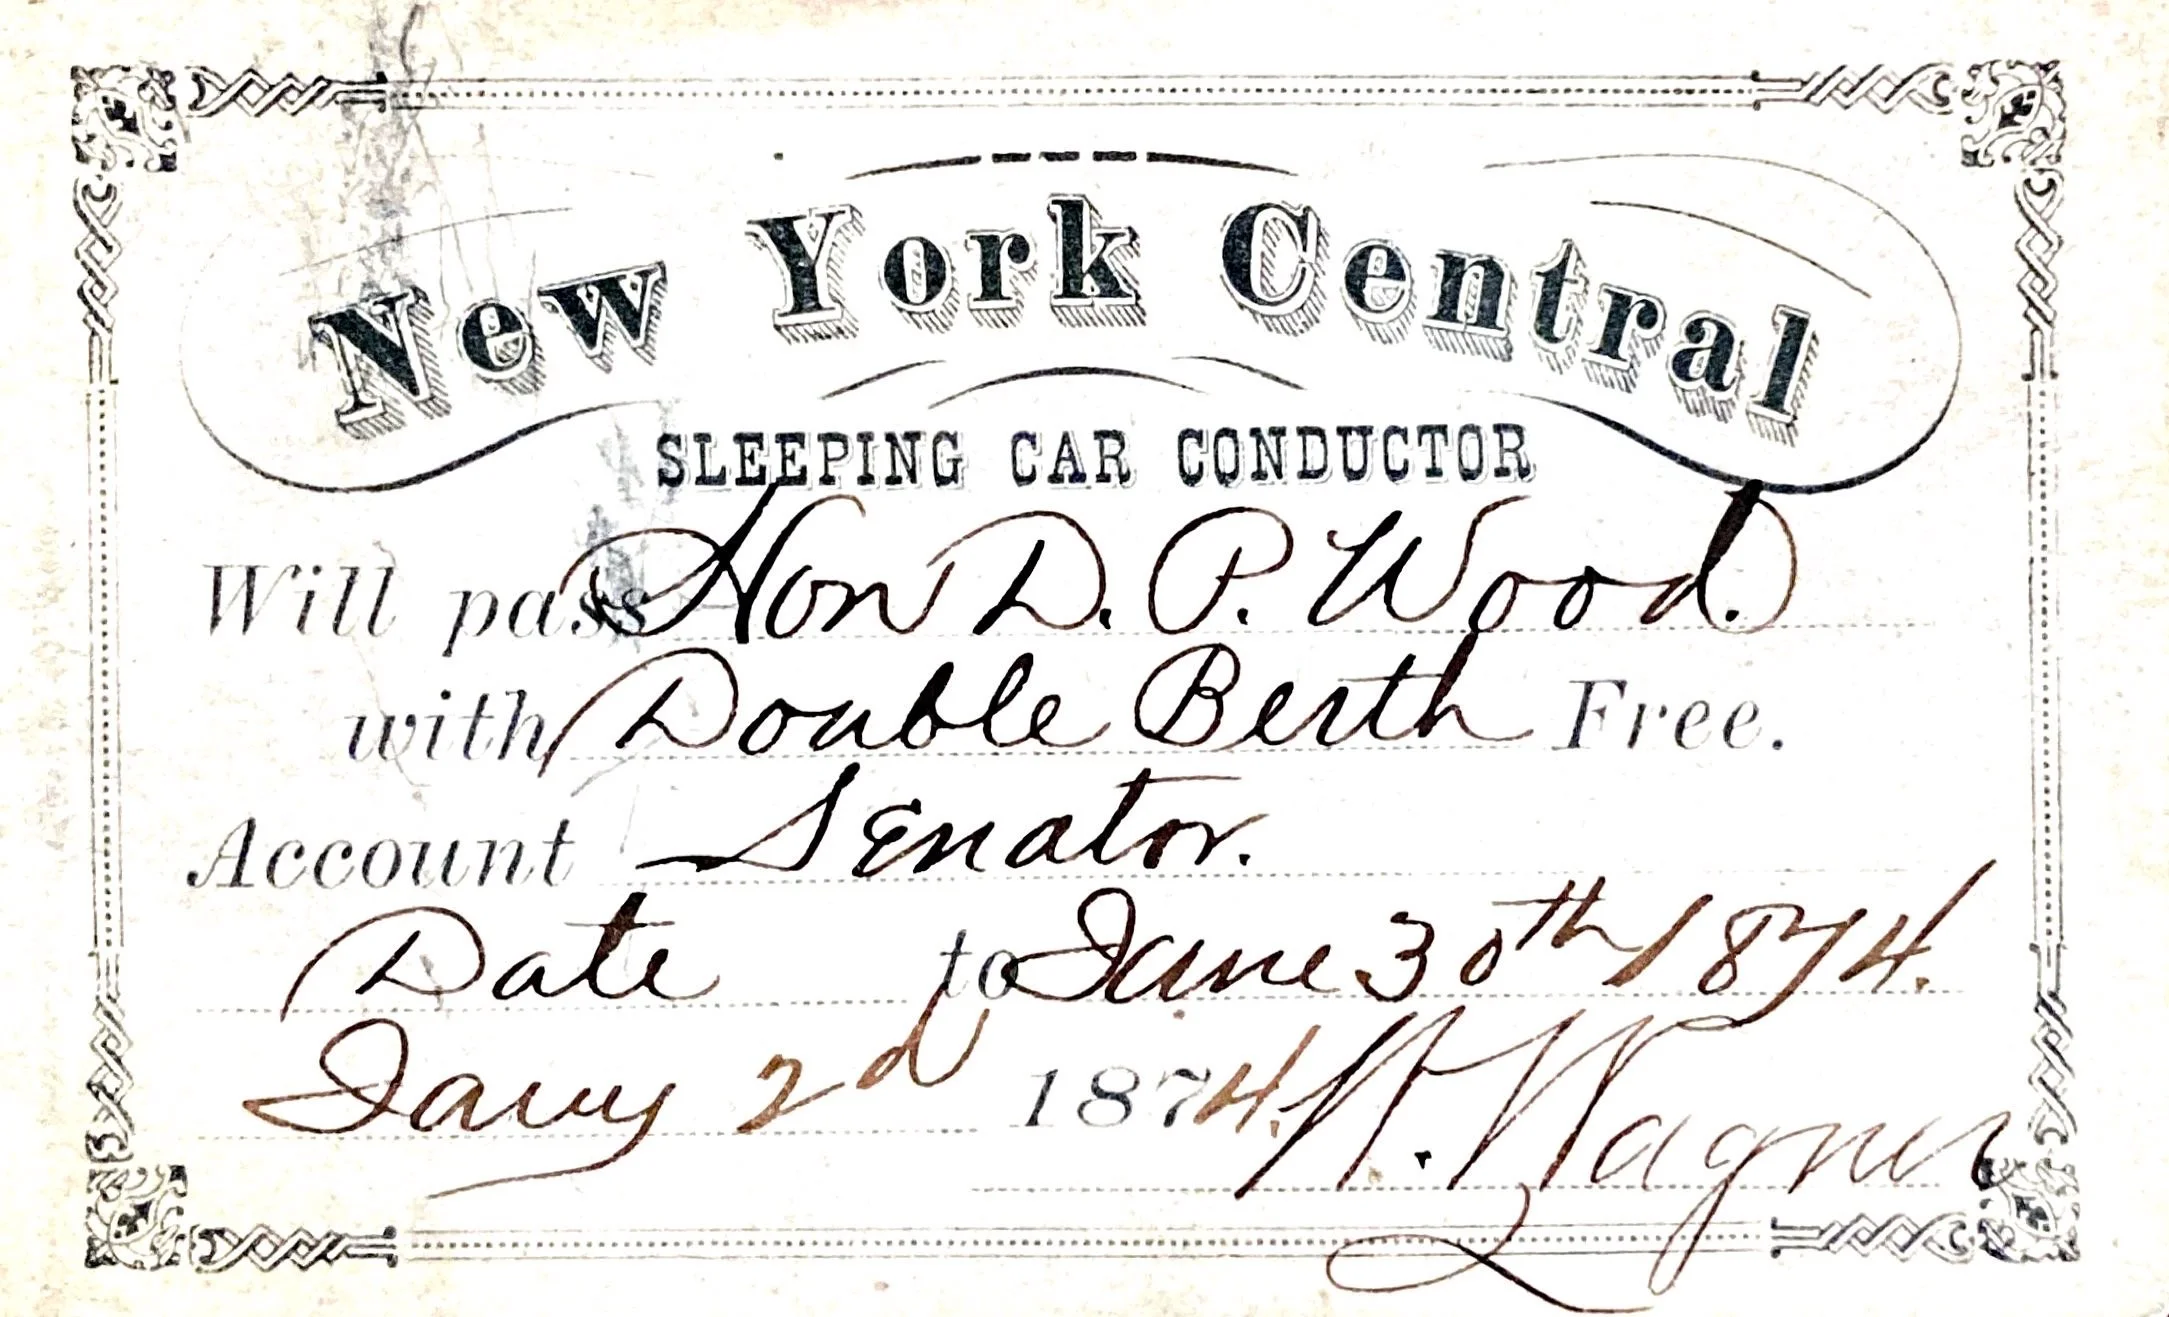 New York Central
SLEEPING CAR CONDUCTOR
Will pass Hon D. P. Wood.
with Double Berth Free.
Account Senator.
Date to June 30th 1874.
Jany 2d 1874. W. Wagner